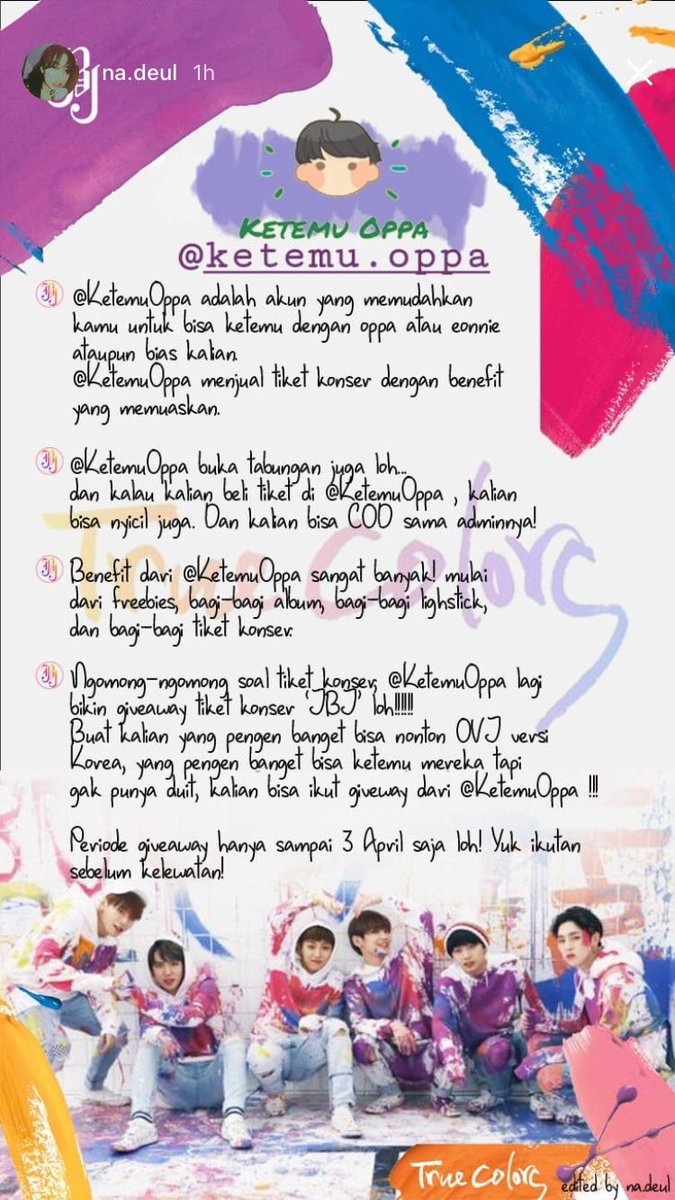 na.deul 1h
KETEMU OPPA
@ketemu.oppa
@KetemuOppa adalah akun yang memudahkan
kamu untuk bisa ketemu dengan oppa atau eonnie
ataupun bias kalian.
@KetemuOppa menjual tiket konser dengan benefit
yang memuaskan.
@KetemuOppa buka tabungan juga loh...
dan kalau kalian beli tiket di @KetemuOppa , kalian
bisa nyicil juga. Dan kalian bisa COD sama adminnya!
True Colors
Benefit dari @KetemuOppa sangat banyak! mulai
dari freebies, bagi-bagi album, bagi-bagi lighstick,
dan bagi-bagi tiket konser.
Ngomong-ngomong soal tiket konser, @KetemuOppa lagi
bikin giveaway tiket konser 'JBJ' loh!!!!!
Buat kalian yang pengen banget bisa nonton OVJ versi
Korea, yang pengen banget bisa ketemu mereka tapi
gak punya duit, kalian bisa ikut giveway dari @KetemuOppa !!!
Periode giveaway hanya sampai 3 April saja loh! Yuk ikutan
sebelum kelewatan!
True Colors
edited by na.deul